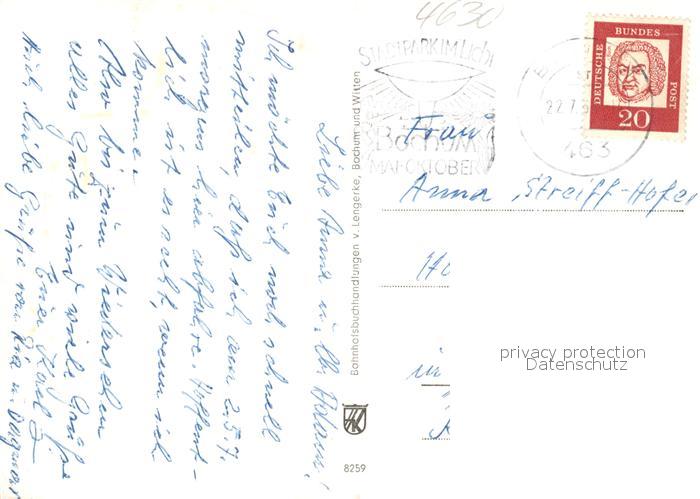 4630
STADTPARK IM LICHT
Bochum
MAI-OKTOBER
463
DEUTSCHE
BUNDES
POST
20
Frau
Anna Streiff-Hofer
in
privacy protection
Datenschutz
Bahnhofsbuchhandlungen v. Lengerke, Bochum und Witten
8259
Liebe Anna u. lb. Johann!
Ich möchte Euch noch schnell
mitteilen, daß ich am 25.7.
morgens hier abfahre. Hoffent-
lich ist es recht, wenn ich
komme.
Also bis zum Wiedersehen
alles Gute und viele Grüße
Eure
Auch liebe Grüße von